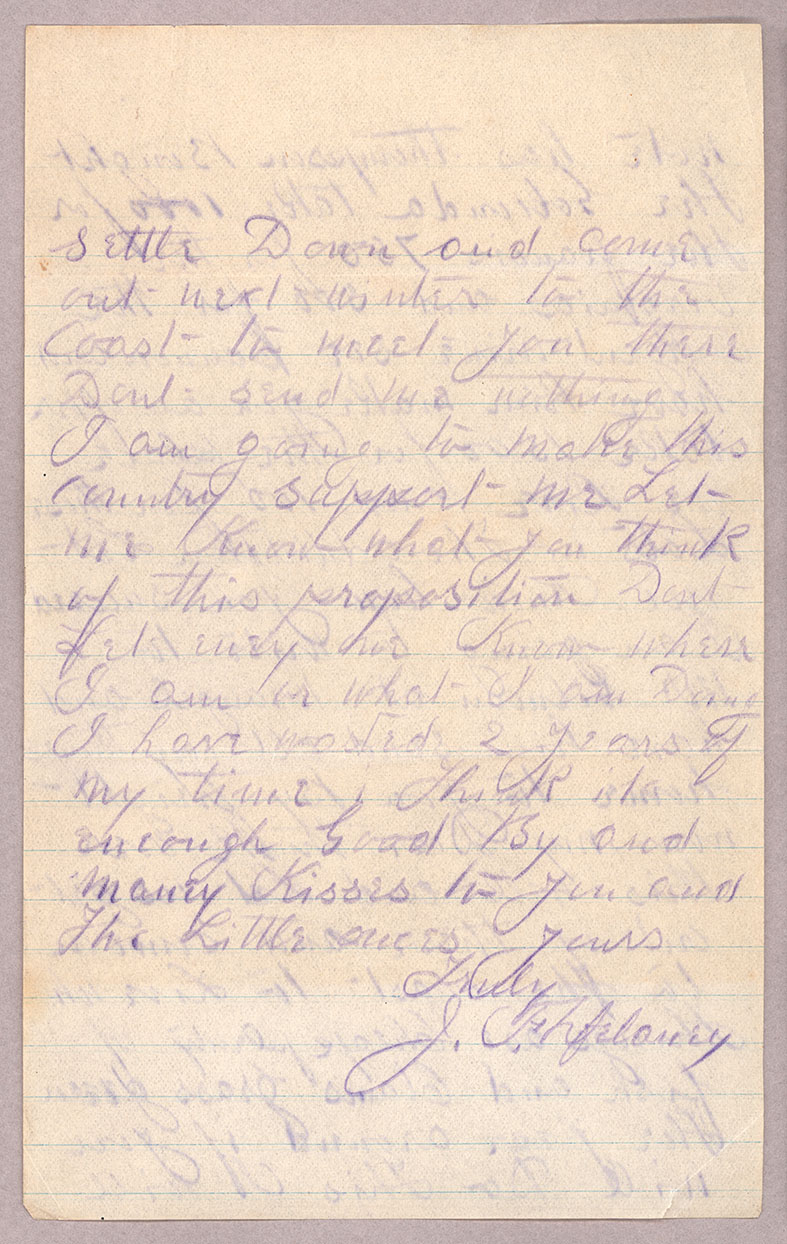 settle Down and come
out next winter to the
Coast to meet you there
Dont send me nothing
I am going to make this
Country support me Let
me Know what you think
of this proposition Dont
Let eney one Know where
I am or what I am Doing
I have wasted 2 years of
my time, I think it
enough Good By and
maney Kisses to you and
The Little ones yours
Truly
J.